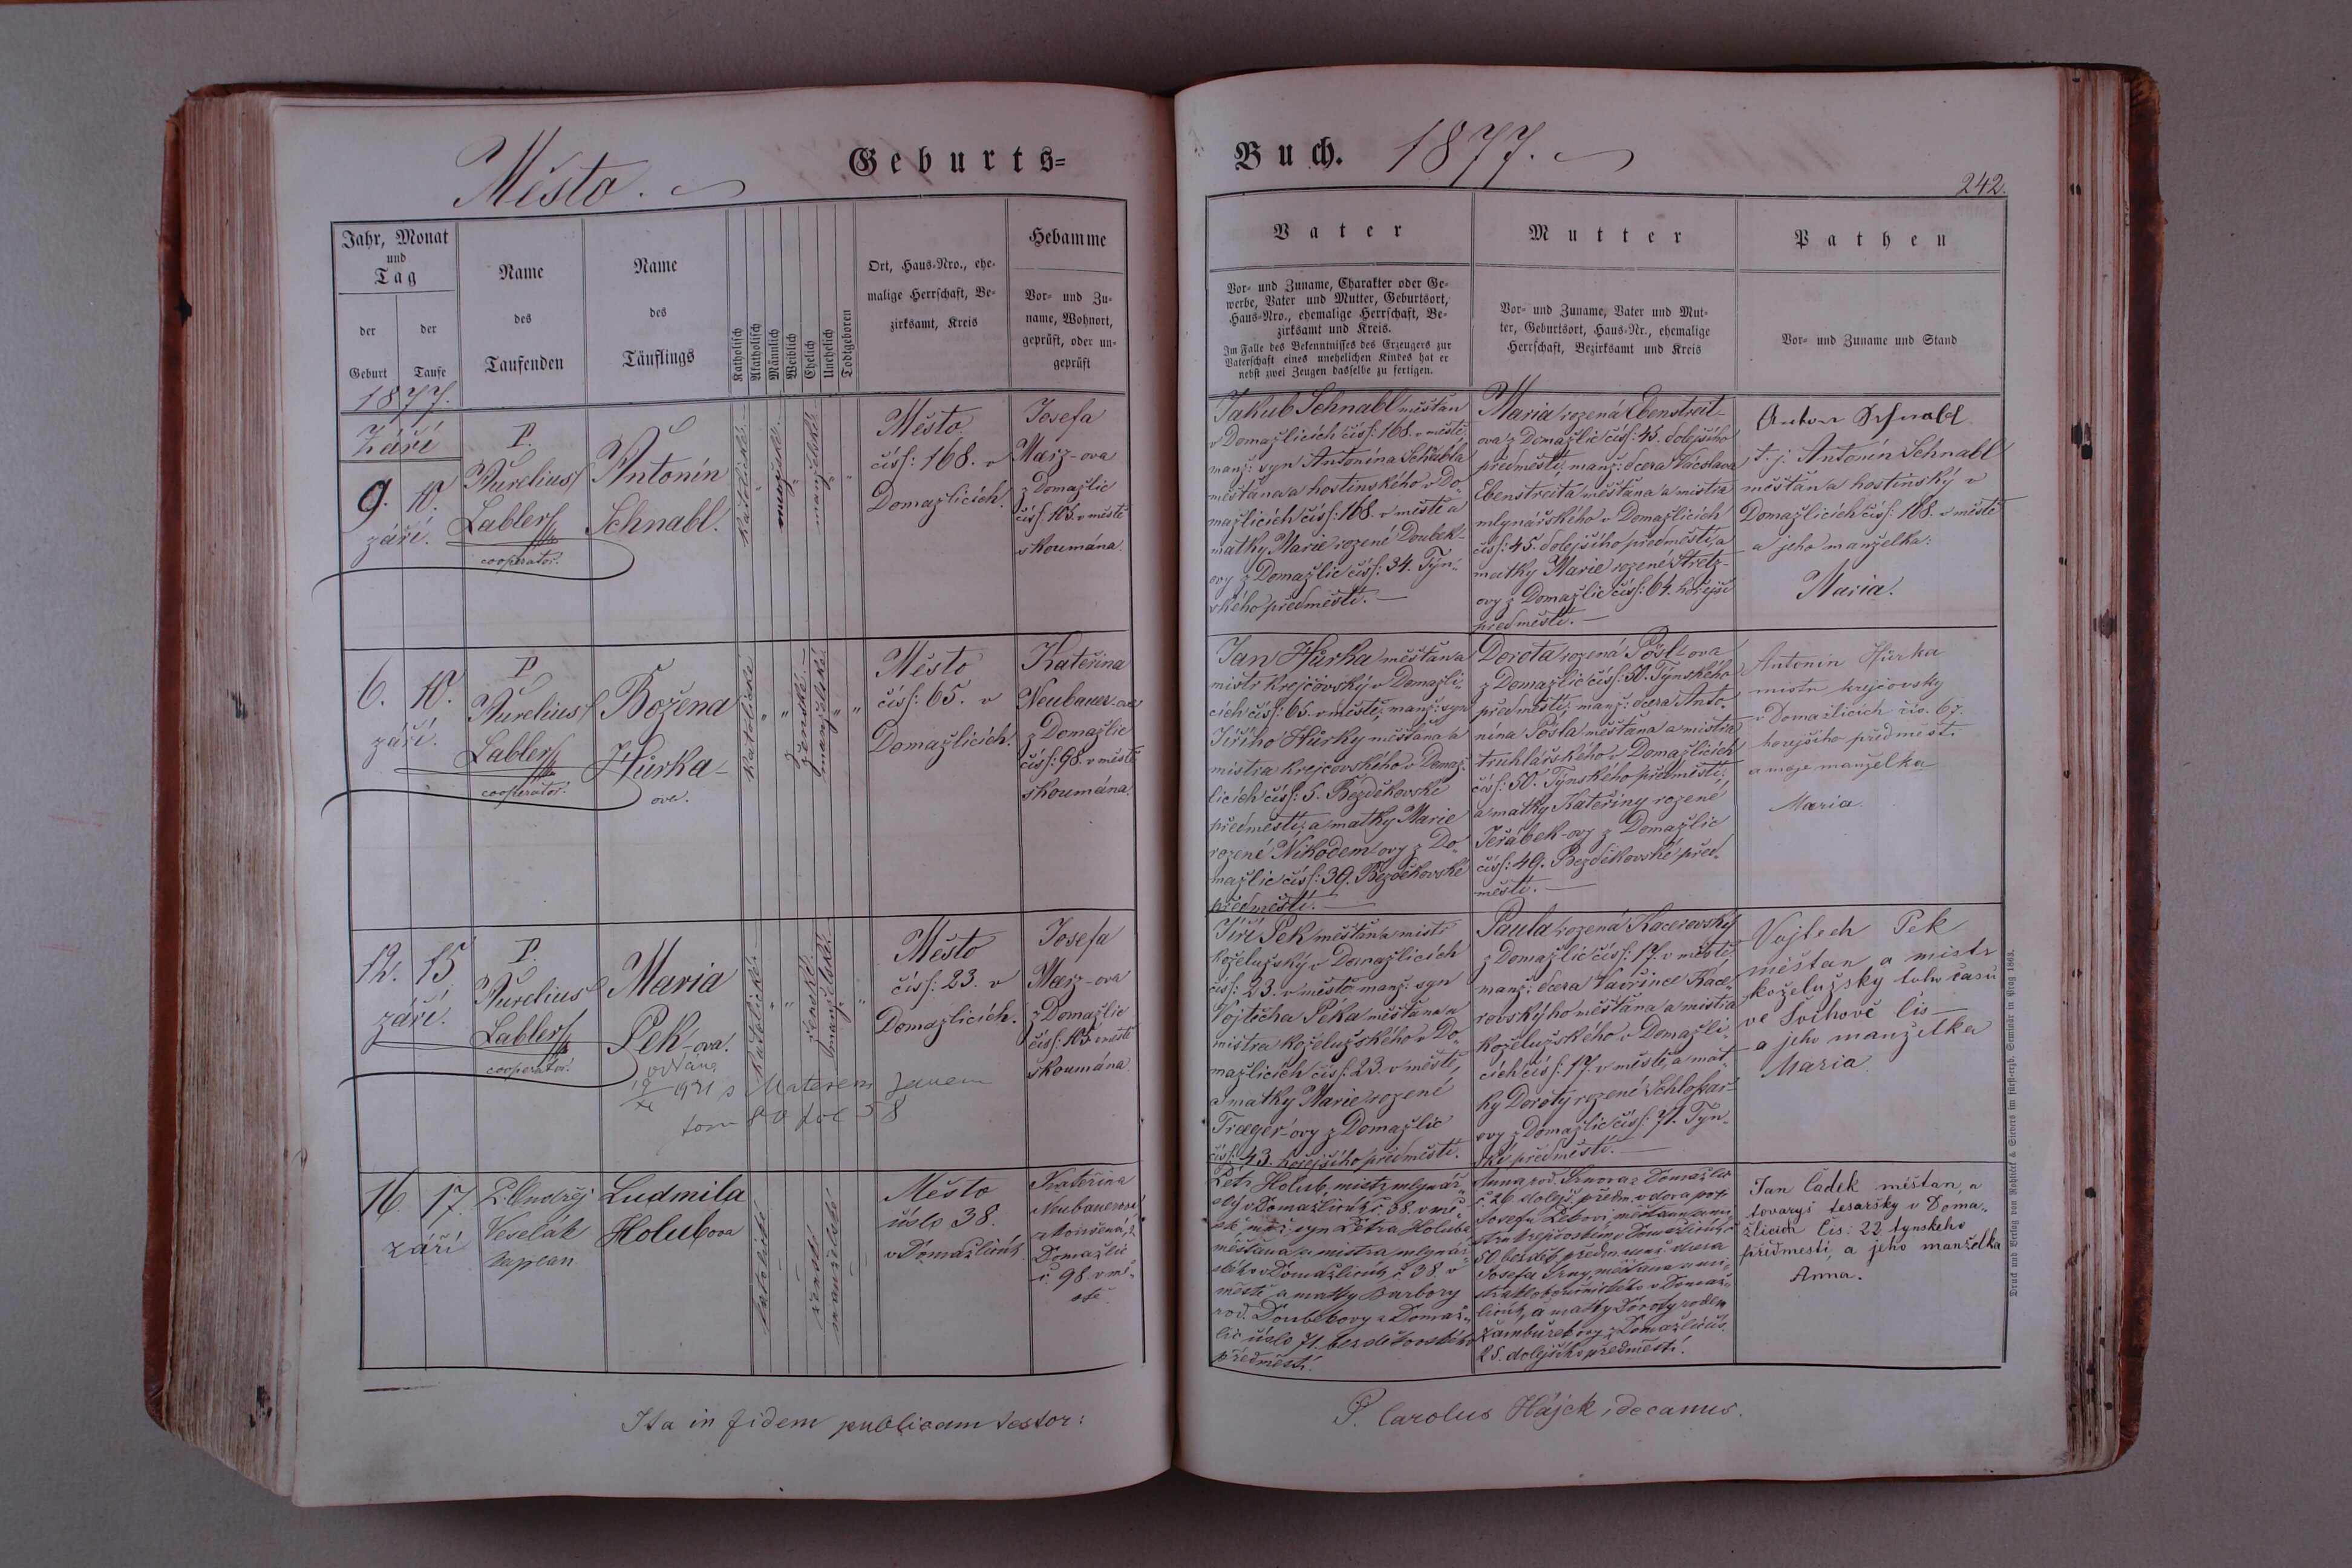 Město.
Geburts=
Jahr, Monat
und
Tag
der
Geburt
der
Taufe
Name
des
Taufenden
Name
des
Täuflings
Katholisch
Akatholisch
Männlich
Weiblich
Ehelich
Unehelich
Todtgeboren
Ort, Haus=Nro., ehe=
malige Herrschaft, Be=
zirksamt, Kreis
Hebamme
Vor= und Zu=
name, Wohnort,
geprüft, oder un=
geprüft
1877.
Září
9. 10.
září.
P.
Aurelius
Labler
cooperator.
Antonín
Schnabl.
katolické
mužské
manželské
Město
čísl: 168. v
Domažlicích.
Josefa
Marz-ova
z Domažlic
čísl: 105. v městě
skoumána.
6. 10.
září.
P.
Aurelius
Labler
cooperator.
Božena
Hůrka-
ova.
katolické
ženské
manželské
Město
čísl: 65. v
Domažlicích.
Kateřina
Neubauer-ova
z Domažlic
čísl: 98. v městě
skoumána.
12. 15.
září.
P.
Aurelius
Labler
cooperator.
Maria
Pek-ová.
1921 s Materem Janem
katolické
ženské
manželské
Město
čísl: 23. v
Domažlicích.
Josefa
Marz-ova
z Domažlic
čísl: 105. v městě
skoumána.
16. 17.
září
P. Ondřej
Veselák
kaplan
Ludmila
Holubova
katolické
ženské
manželské
Město
číslo 38.
v Domažlicích
Kateřina
Neubauerova
z
Domažlic
č. 98. v mě-
stě
Ita in fidem publicam testor:
Buch. 1877.
242.
Vater
Vor= und Zuname, Charakter oder Ge=
werbe, Vater und Mutter, Geburtsort,
Haus=Nro., ehemalige Herrschaft, Be=
zirksamt und Kreis.
Im Falle des Bekenntnisses des Erzeugers zur
Vaterschaft eines unehelichen Kindes hat er
nebst zwei Zeugen dasselbe zu fertigen.
Mutter
Vor= und Zuname, Vater und Mut=
ter, Geburtsort, Haus=Nr., ehemalige
Herrschaft, Bezirksamt und Kreis
Pathen
Vor= und Zuname und Stand
Jakub Schnabl měštan
v Domažlicích čísl: 168. v městě
manž: syn Antonína Schnabla
měštana a hostinského v Do-
mažlicích čísl: 168. v městě a
matky Marie rozené Doubek-
ovy z Domažlic čísl: 34. Týn-
ského předměstí.
Maria rozená Ebenstreit-
ova z Domažlic čísl: 45. dolejšího
předměstí, manž: dcera Václava
Ebenstreita měštana a mistra
mlynářského v Domažlicích
čísl: 45. dolejšího předměstí, a
matky Marie rozené Stretz-
ovy z Domažlic čísl: 64. hořejší
předměstí.
Anton Schnabl
t. j. Antonín Schnabl
měštan a hostinský v
Domažlicích čísl: 168. v městě
a jeho manželka:
Maria.
Jan Hůrka měštan a
mistr krejčovský v Domažli-
cích čísl: 65. v městě, manž: syn
Jiřího Hůrky měštana a
mistra krejčovského v Domaž-
licích čísl: 5. Bezděkovské
předměstí, a matky Marie
rozené Nikodem-ovy z Do-
mažlic čísl: 39. Bezděkovské
předměstí.
Dorota rozená Pösl-ova
z Domažlic čísl: 50. Týnského
předměstí, manž: dcera Anto-
nína Pösla měštana a mistra
truhlářského v Domažlicích
čísl: 50. Týnského předměstí,
a matky Kateřiny rozené
Jeřábek-ovy z Domažlic
čísl: 49. Bezděkovské před-
městí.
Antonin Hůrka
mistr krejčovsky
v Domažlicích čís. 67.
horejšiho předměst.
a moje manželka
Maria.
Jiří Pek měštan a mistr
koželužský v Domažlicích
čísl: 23. v městě manž: syn
Vojtěcha Peka měštana a
mistra koželužského v Do-
mažlicích čísl: 23. v městě,
a matky Marie rozené
Traeger-ovy z Domažlic
čísl: 43. hořejšího předměstí.
Paula rozená Kacerovský
z Domažlic čísl: 17. v městě,
manž: dcera Vavřince Kace-
rovskýho měštana a mistra
koželužského v Domažli-
cích čísl: 17. v městě, a mat-
ky Doroty rozené Schlossar-
ovy z Domažlic čísl: 71. Týn-
ské předměstí.
Vojtech Pek
měštan a mistr
koželužsky toho času
ve Švihově čis
a jeho manželka
Maria
Petr Holub, mistr mlynář-
ský v Domažlicích č. 38. v mě-
stě, manž. syn Petra Holuba
měštana a mistra mlynář-
ského v Domažlicích č. 38. v
městě a matky Barbory
rod. Doubkovy z Domaž-
lic číslo 71. bezděkovského
předměstí.
Anna rod. z Domažlic
č. 26 dolejš. předm. vdova po
Josefu
50. bezděk. předm. manž. dcera
Josefa měštana a mi-
stra v Domaž-
licích, a matky Doroty rodem
z Domažlic čís.
25. dolejšího předměstí.
Jan Čadek měštan, a
tovaryš tesařsky v Doma-
žlicích čis: 22 tynskeho
předmesti, a jeho manželka
Anna.
P. Carolus Hájek, decanus.
Druck und Verlag von Rohliček & Sievers im fürst=erzb. Seminär in Prag 1863.